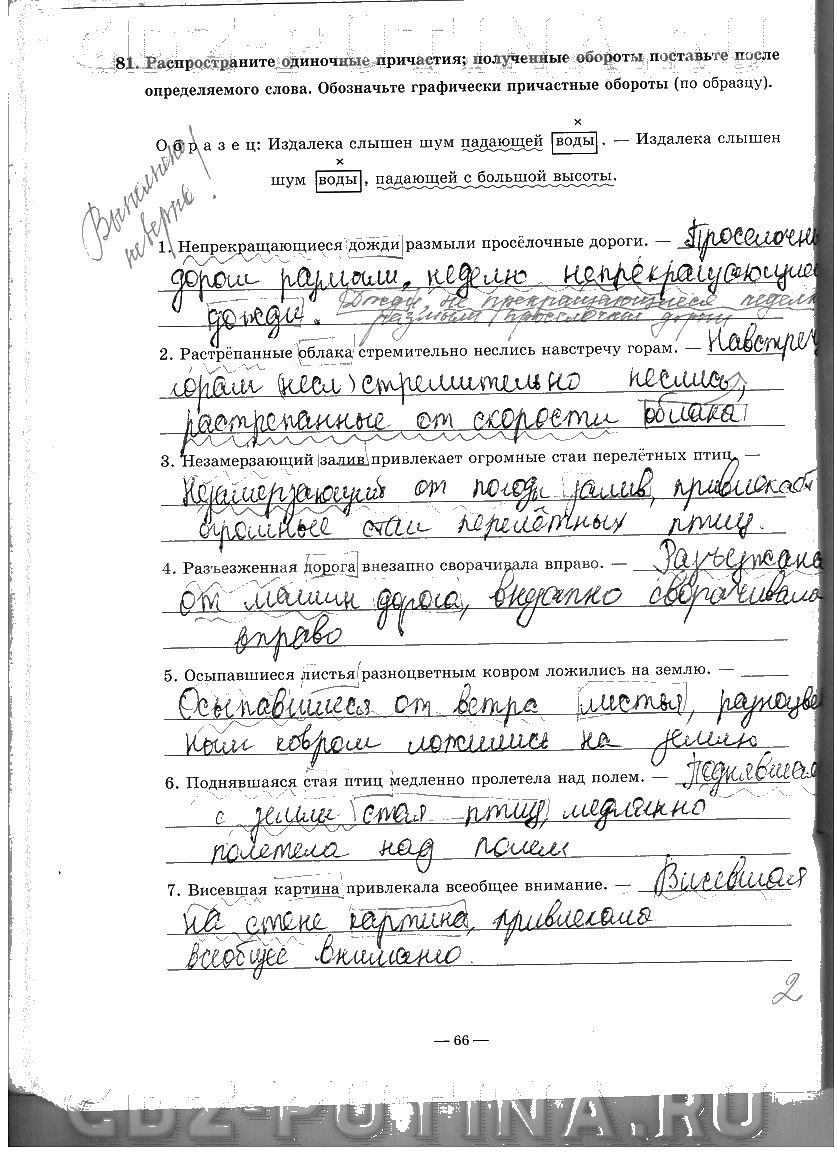 GDZ-PUTINA.RU
81. Распространите одиночные причастия; полученные обороты поставьте после
определяемого слова. Обозначьте графически причастные обороты (по образцу).
О б р а з е ц: Издалека слышен шум падающей воды. — Издалека слышен
шум воды, падающей с большой высоты.
Выполнено
неверно!
1. Непрекращающиеся дожди размыли просёлочные дороги. — Проселочны
дороги размыли, неделю непрекращающиеся
дожди.
Дожди, не прекращающиеся неделю
размыли проселочные дороги
2. Растрёпанные облака стремительно неслись навстречу горам. — Навстреч
горам (несл) стремительно неслись,
растрепанные от скорости облака
3. Незамерзающий залив привлекает огромные стаи перелётных птиц. —
Незамерзающий от погоды залив, привлекает
огромные стаи перелётных птиц.
4. Разъезженная дорога внезапно сворачивала вправо. — Разъезжана
от машин дорога, внезапно сворачивала
вправо
5. Осыпавшиеся листья разноцветным ковром ложились на землю. —
Осыпавшиеся от ветра листья, разноцве
ным ковром ложились на землю
6. Поднявшаяся стая птиц медленно пролетела над полем. — Поднявшая
с земли стая птиц, медленно
полетела над полем
7. Висевшая картина привлекала всеобщее внимание. — Висевшая
на стене картина, привлекала
всеобщее внимание.
2
— 66 —
GDZ-PUTINA.RU